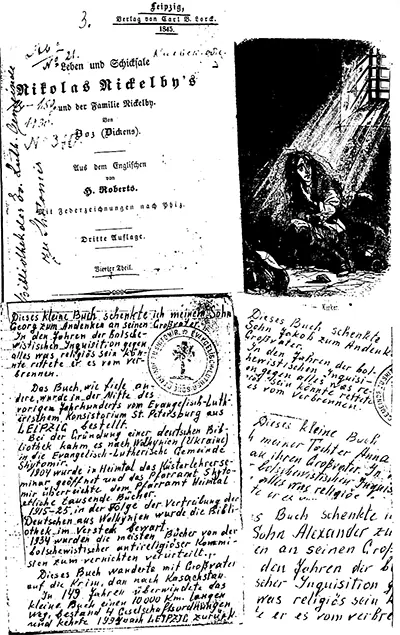 3.
Leipzig,
Verlag von Carl B. Lorck.
1845.
No 21.
Leben und Schicksale
Nikolas Nickelby's
und der Familie Nickelby.
Von
Boz (Dickens).
Aus dem Englischen
von
H. Roberts.
Mit Federzeichnungen nach Phiz.
Dritte Auflage.
Vierter Theil.
Bibliothek der Ev. Luth. Gemeinde
zu Shitomir
Dieses kleine Buch schenkte ich meinem Sohn
Georg zum Andenken an seinen Großvater.
In den Jahren der bolsche-
wistischen Inquisition gegen
alles was religiös sein kön-
nte rettete er es vom ver-
brennen.
Das Buch, wie viele an-
dere, wurde in der Mitte des
vorigen Jahrhunderts vom Evangelisch-Luth-
erischem Konsistorium St. Petersburg aus
LEIPZIG bestellt.
Bei der Gründung einer deutschen Bib-
liothek kahm es nach Wolhynien (Ukraine)
in die Evangelisch-Lutherische Gemeinde
Shytomir.
1904 wurde in Heimtal das Küsterlehrerse-
minar geöffnet und das Pfarramt Shyto-
mir überreichte dem Pfarramt Heimtal
etliche Tausende Bücher.
1915-25, in der Folge der Vertreibung der
Deutschen aus Wolhynien wurde die Biblio-
thek im Versteck bewart.
1934 wurden die meisten Bücher von der
bolschewistischen antireligiöser Kommi-
ssion zum vernichten verurteilt.
Dieses Buch wanderte mit Großvater
auf die Krim, dan nach Kasachstan.
In 149 Jahren überwindete das
kleine Buch einen 10000 km langen
weg, bestand 4 Geselschaftsordnungen
und kehrte 1994 nach LEIPZIG zurück.
Dieses Buch schenkte
Sohn Jakob zum Andenke
Großvater.
In den Jahren der bol-
schewistischen Inquisi-
tion gegen alles was religi-
ös sein könnte rettet
er es vom verbrennen.
Dieses kleine
h meiner Tochter Anna
an ihren Großvater. In
bolschewistischen Inquis
alles was religiös
te er es
s Buch schenkte i
Sohn Alexander zu
en an seinen Groß
den Jahren der b
scher Inquisition g
was religiös sein
er es vom verbre